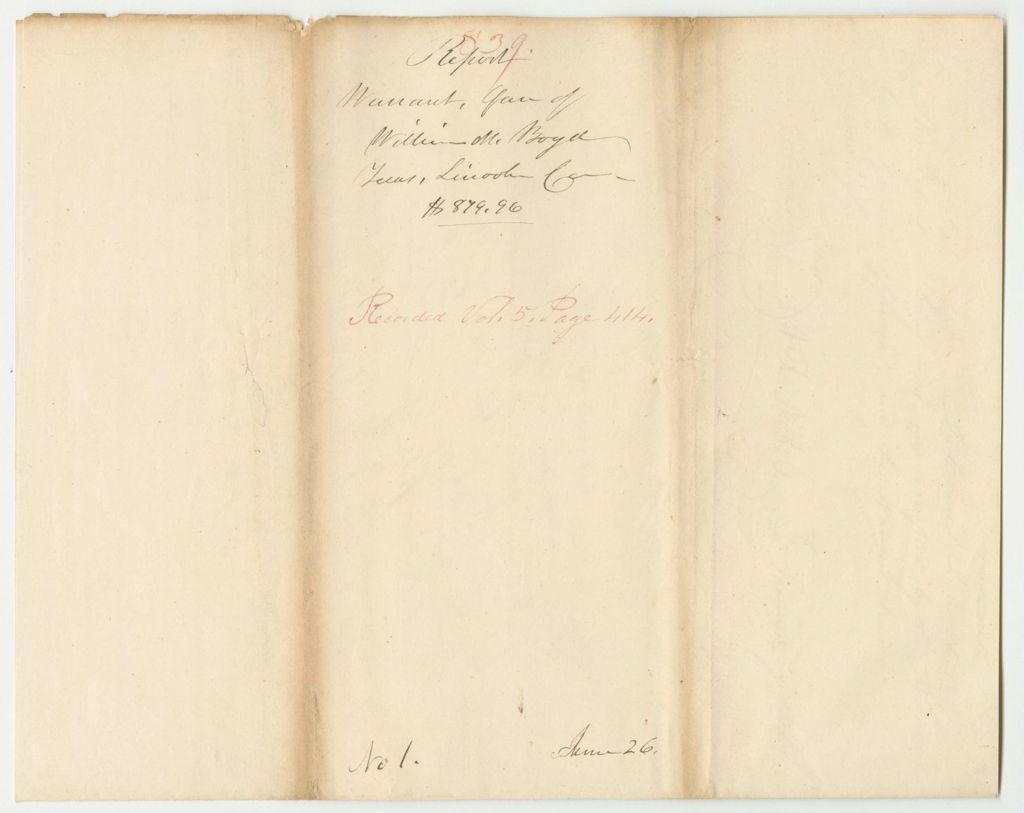 839.
Report
Warrant, favr of
William M. Boyd
Treas, Lincoln Co
$879.96
Recorded Vol. 5. Page 414.
No 1.
June 26.